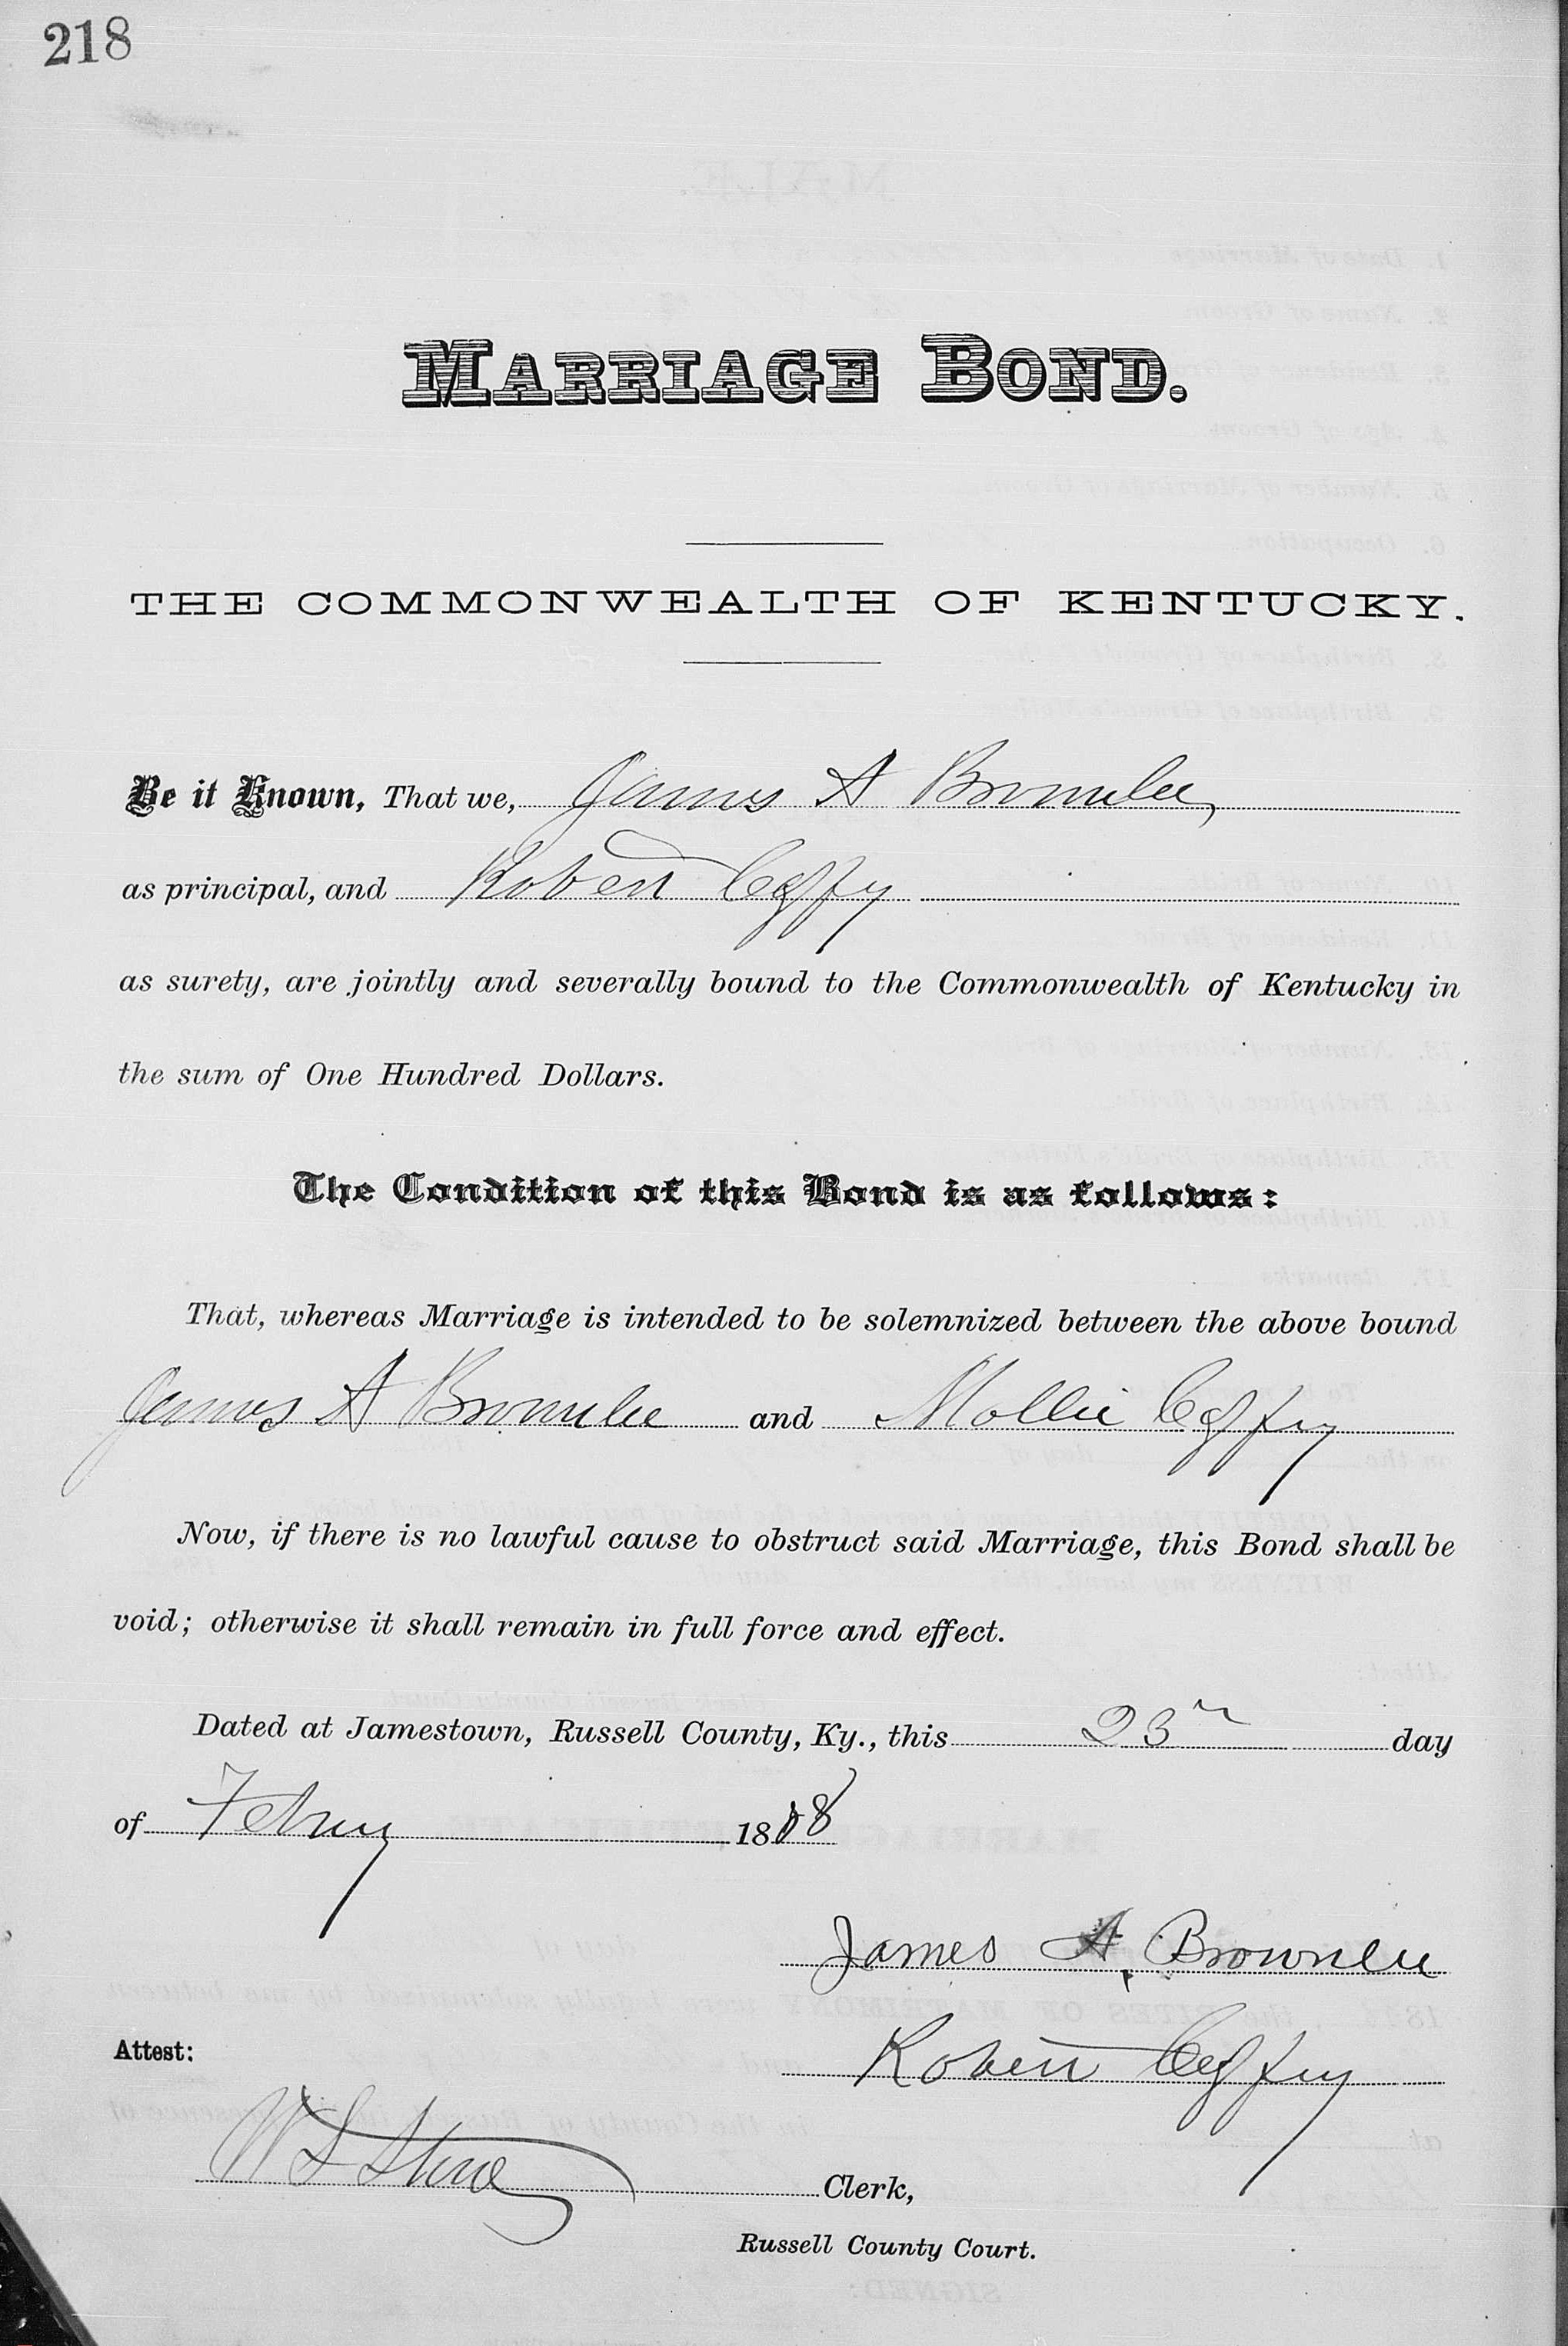 218
MARRIAGE BOND.
THE COMMONWEALTH OF KENTUCKY.
Be it Known, That we, James A Brownlee,
as principal, and Robert Coffey
as surety, are jointly and severally bound to the Commonwealth of Kentucky in
the sum of One Hundred Dollars.
The Condition of this Bond is as follows:
That, whereas Marriage is intended to be solemnized between the above bound
James A Brownlee and Mollie Coffey
Now, if there is no lawful cause to obstruct said Marriage, this Bond shall be
void; otherwise it shall remain in full force and effect.
Dated at Jamestown, Russell County, Ky., this 23 day
of Febry 1888
James A. Brownlee
Attest: Robert Coffey
W S Stone Clerk,
Russell County Court.